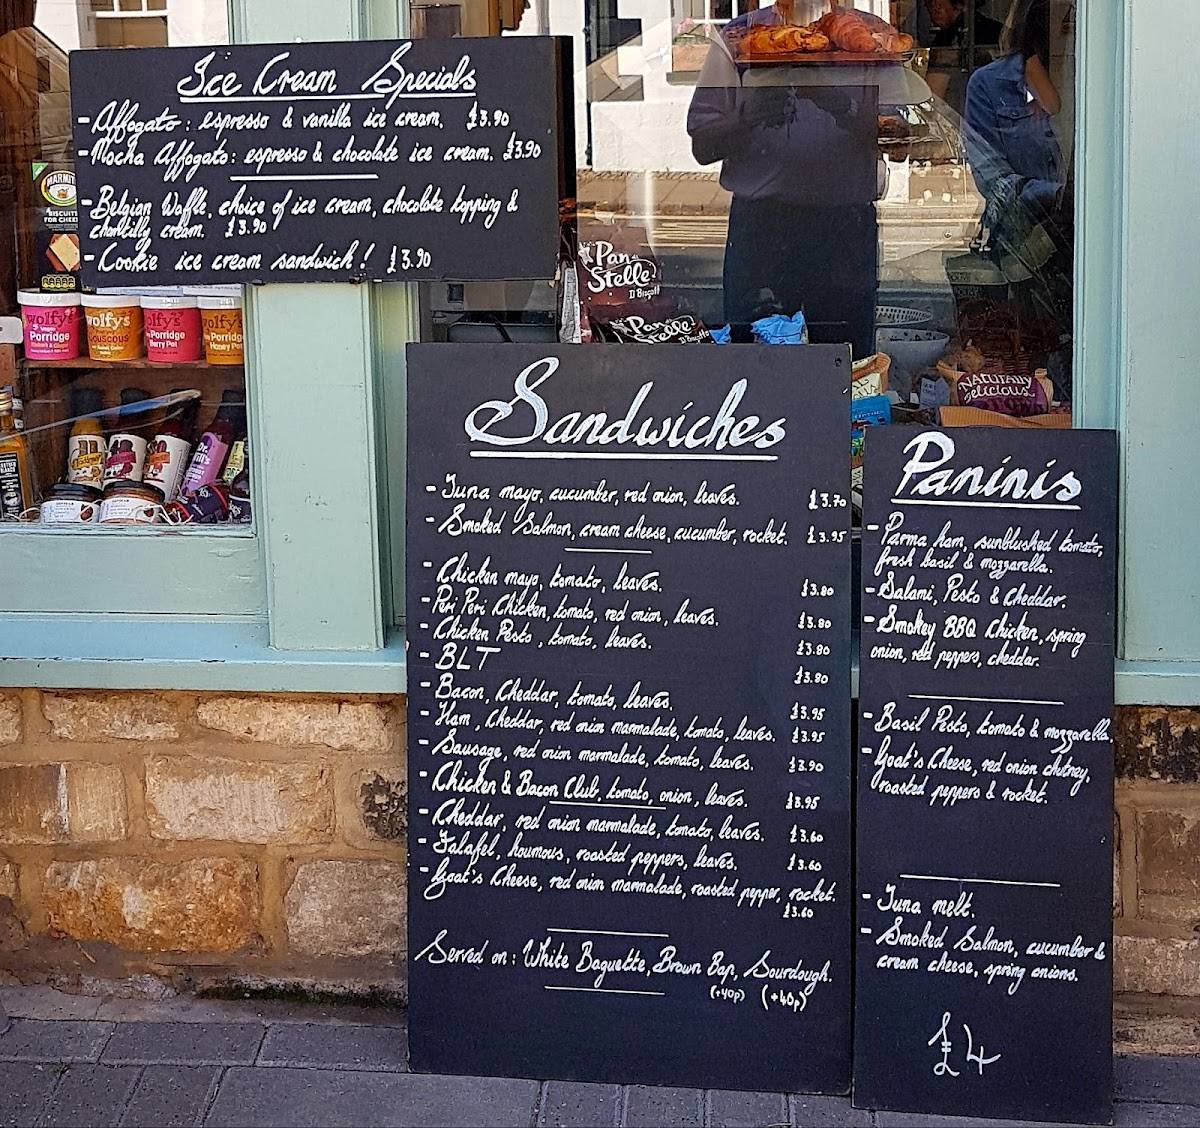 Ice Cream Specials
- Affogato: espresso & vanilla ice cream. £3.90
- Mocha Affogato: espresso & chocolate ice cream. £3.90
- Belgian Waffle, choice of ice cream, chocolate topping &
chantilly cream. £3.90
- Cookie ice cream sandwich! £3.90
MARMITE
BISCUITS
FOR CHEESE
wolfy's
Porridge
wolfy's
Couscous
wolfy's
Porridge
Berry Pot
wolfy's
Porridge
Honey Pot
Pan
Stelle
D'Biscotti
Pan
Stelle
NATURALLY
delicious
Sandwiches
- Tuna mayo, cucumber, red onion, leaves. £3.70
- Smoked Salmon, cream cheese, cucumber, rocket. £3.95
- Chicken mayo, tomato, leaves. £3.80
- Peri Peri Chicken, tomato, red onion, leaves. £3.80
- Chicken Pesto, tomato, leaves. £3.80
- BLT £3.80
- Bacon, Cheddar, tomato, leaves. £3.95
- Ham, Cheddar, red onion marmalade, tomato, leaves. £3.95
- Sausage, red onion marmalade, tomato, leaves. £3.90
- Chicken & Bacon Club, tomato, onion, leaves. £3.95
- Cheddar, red onion marmalade, tomato, leaves. £3.60
- Falafel, houmous, roasted peppers, leaves. £3.60
- Goat's Cheese, red onion marmalade, roasted pepper, rocket.
£3.60
Served on: White Baguette, Brown Bap, Sourdough.
(+40p) (+40p)
Paninis
- Parma ham, sunblushed tomato,
fresh basil & mozzarella.
- Salami, Pesto & Cheddar.
- Smokey BBQ Chicken, spring
onion, red peppers, cheddar.
- Basil Pesto, tomato & mozzarella.
- Goat's Cheese, red onion chutney,
roasted peppers & rocket.
- Tuna melt.
- Smoked Salmon, cucumber &
cream cheese, spring onions.
£4